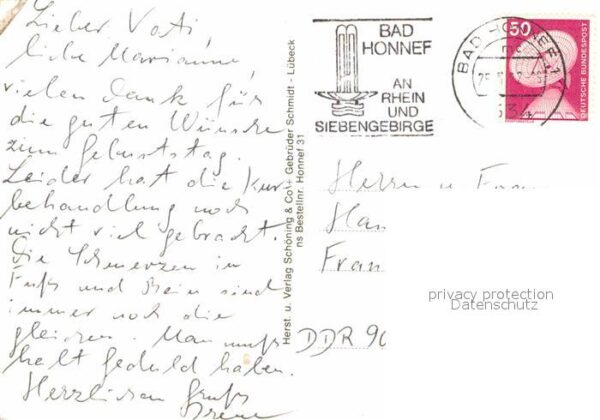 Lieber Vati,
liebe Marianne,
vielen Dank für
die guten Wünsche
zum Geburtstag.
Leider hat die Kur
behandlung noch
nicht viel gebracht.
Die Schmerzen im
Fuß und Bein sind
immer noch die
gleichen. Man muß
halt geduld haben.
Herzlichen Gruß
Irene
Herst. u. Verlag Schöning & Co. + Gebrüder Schmidt - Lübeck
ns Bestellnr. Honnef 31
BAD
HONNEF
AN
RHEIN
UND
SIEBENGEBIRGE
BAD HONNEF 1
534
50
DEUTSCHE BUNDESPOST
Herrn u. Frau
Han
Fran
DDR 90
privacy protection
Datenschutz